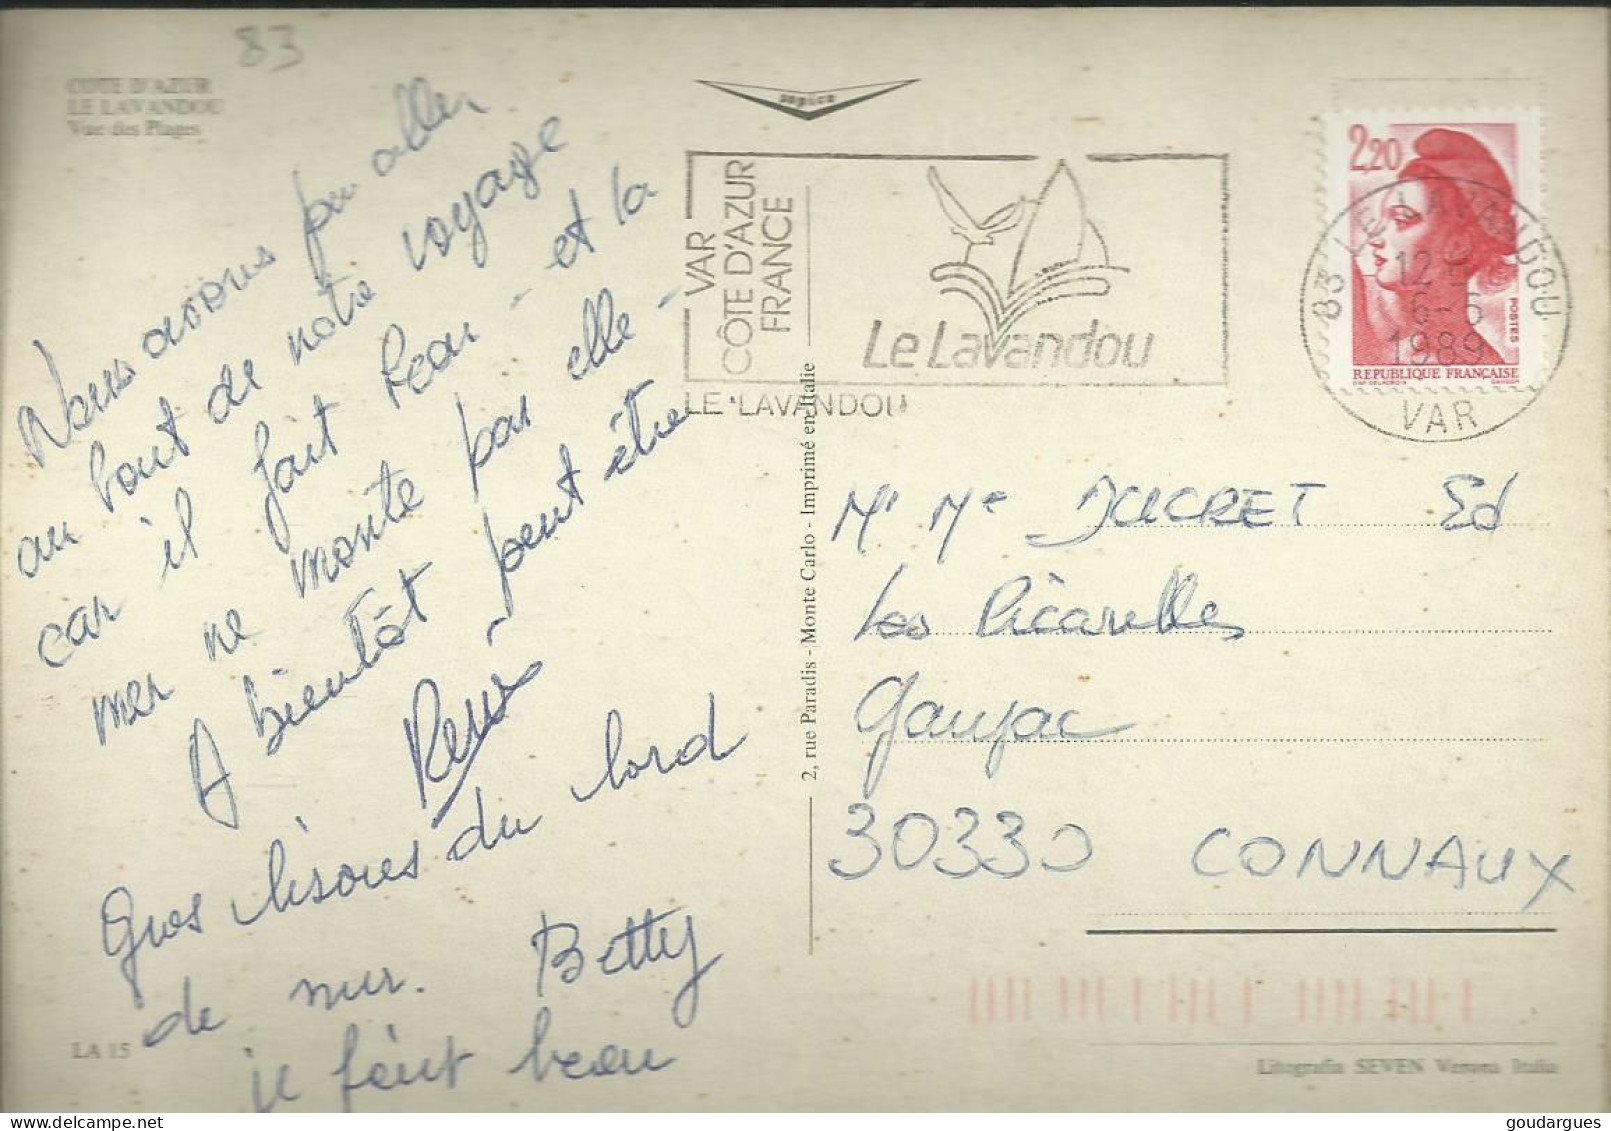 83
COTE D'AZUR
LE LAVANDOU
Vue des Plages
Nous avons pu aller
au bout de notre voyage
car il fait beau - et la
mer ne monte pas elle -
A bientôt peut être
Gros bisous du bord
de mer. Betty
il fait beau
LA 15
sopico
VAR
CÔTE D'AZUR
FRANCE
Le Lavandou
LE LAVANDOU
2,20
POSTES
REPUBLIQUE FRANÇAISE
83 LE LAVANDOU
12 H
6-6
1989
VAR
2, rue Paradis - Monte Carlo - Imprimé en Italie
Mr Me DUCRET Ed
Les Picarelles
Gaujac
30330 CONNAUX
Litografia SEVEN Verona Italia
goudargues